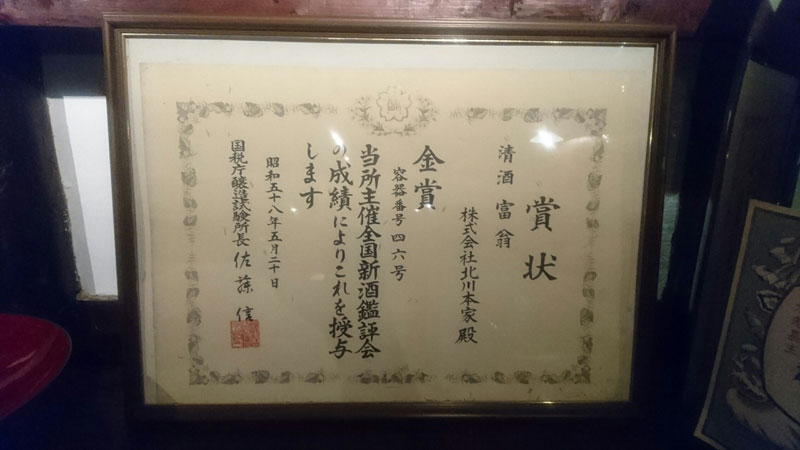 賞状
清酒 富翁
株式会社北川本家 殿
金賞
容器番号 四六号
当所主催全国新酒鑑評会
の成績によりこれを授与
します
昭和五十八年五月二十日
国税庁醸造試験所長 佐藤信